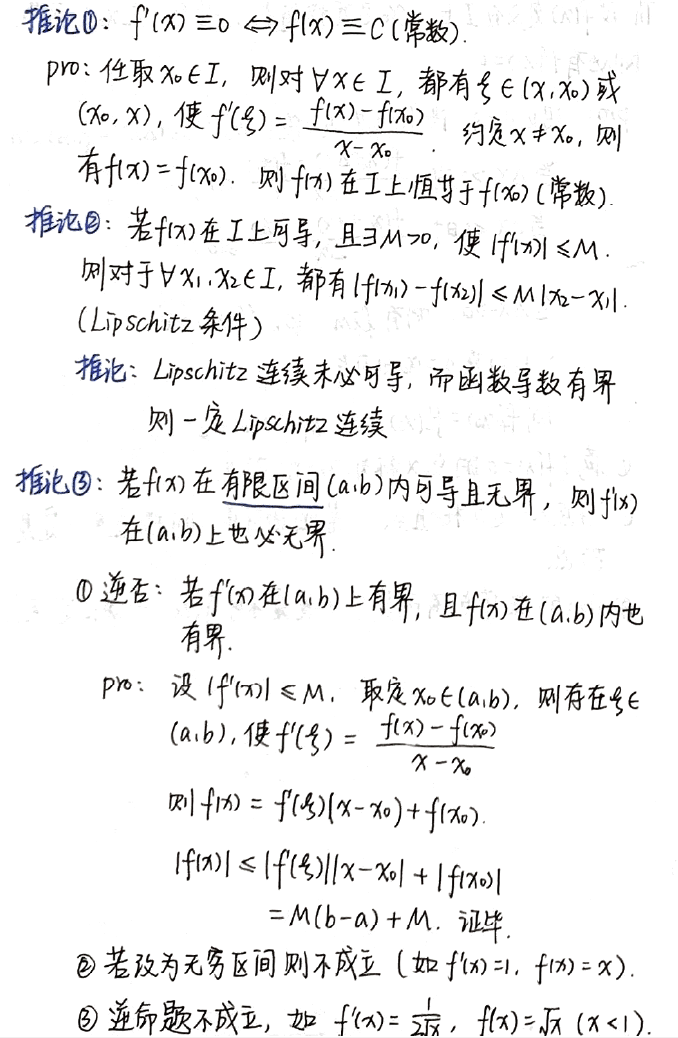 推论①: f'(x) ≡ 0 ⇔ f(x) ≡ C (常数).
pro: 任取 x₀ ∈ I, 则对 ∀x ∈ I, 都有 ξ ∈ (x, x₀) 或
(x₀, x), 使 f'(ξ) = (f(x) - f(x₀))/(x - x₀). 约定 x ≠ x₀, 则
有 f(x) = f(x₀). 则 f(x) 在 I 上恒等于 f(x₀) (常数).
推论②: 若 f(x) 在 I 上可导, 且 ∃M>0, 使 |f'(x)| ≤ M.
则对于 ∀x₁, x₂ ∈ I, 都有 |f(x₁) - f(x₂)| ≤ M|x₂ - x₁|.
(Lipschitz 条件)
推论: Lipschitz 连续未必可导, 而函数导数有界
则一定 Lipschitz 连续
推论③: 若 f(x) 在有限区间 (a,b) 内可导且无界, 则 f'(x)
在 (a,b) 上也必无界.
① 逆否: 若 f'(x) 在 (a,b) 上有界, 且 f(x) 在 (a,b) 内也
有界.
pro: 设 |f'(x)| ≤ M, 取定 x₀ ∈ (a,b), 则存在 ξ ∈
(a,b), 使 f'(ξ) = (f(x) - f(x₀))/(x - x₀)
则 f(x) = f'(ξ)(x - x₀) + f(x₀).
|f(x)| ≤ |f'(ξ)||x - x₀| + |f(x₀)|
= M(b-a) + M. 证毕.
② 若改为无穷区间则不成立 (如 f'(x)=1, f(x)=x).
③ 逆命题不成立, 如 f'(x) = 1/(2√x), f(x) = √x (x<1).